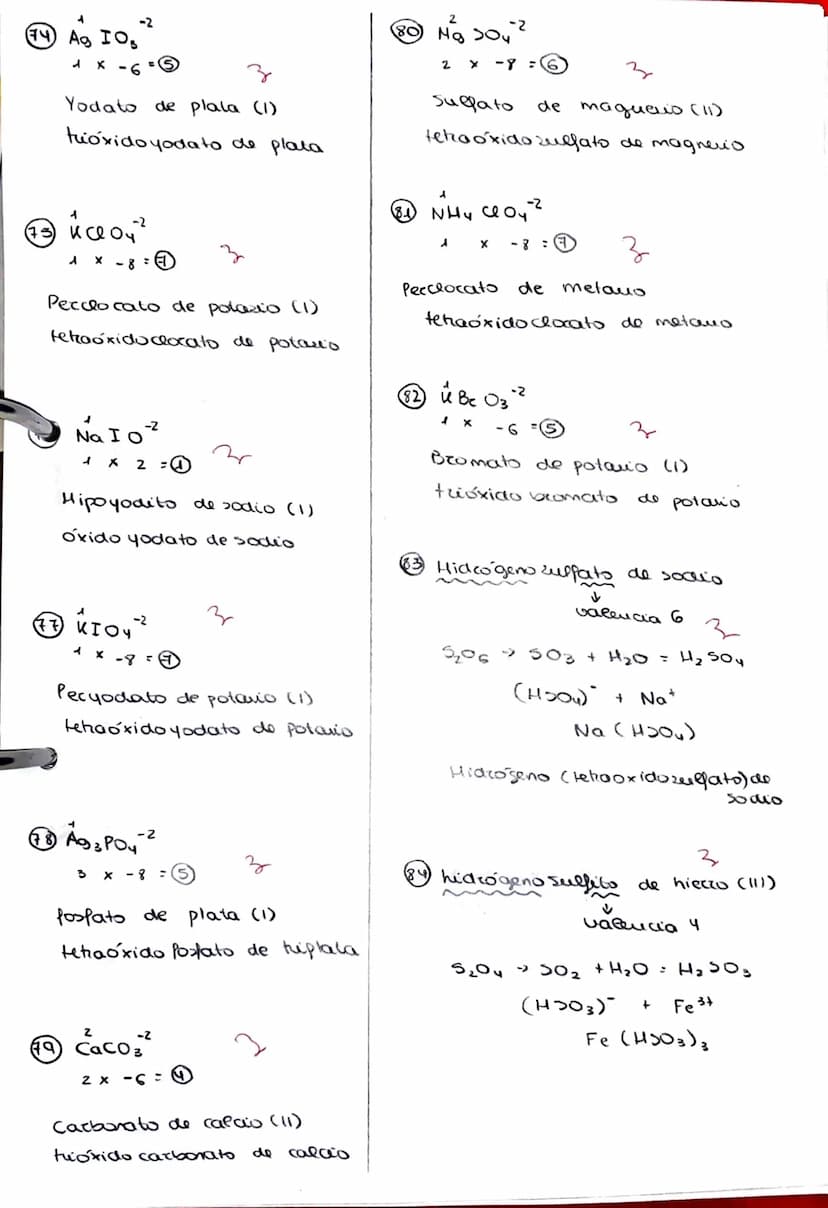 74 Ag IO3
1 -2
1 x -6 = 5
Yodato de plata (I)
trióxidoyodato de plata
75 KClO4
1 -2
1 x -8 = 7
Perclorato de potasio (I)
tetraóxidoclorato de potasio
Na I O
1 -2
1 x 2 = 1
Hipoyodito de sodio (I)
óxido yodato de sodio
77 KIO4
1 -2
1 x -8 = 7
Peryodato de potasio (I)
tetraóxidoyodato de potasio
78 Ag3PO4
1 -2
3 x -8 = 5
fosfato de plata (I)
tetraóxido fosfato de triplata
79 CaCO3
2 -2
2 x -6 = 4
Carbonato de calcio (II)
trióxido carbonato de calcio
80 Mg SO4
2 -2
2 x -8 = 6
Sulfato de magnesio (II)
tetraóxidosulfato de magnesio
81 NH4 ClO4
1 -2
1 x -8 = 7
Perclorato de metano
tetraóxidoclorato de metano
82 K Br O3
1 -2
1 x -6 = 5
Bromato de potasio (I)
trióxido bromato de potasio
83 Hidrógeno sulfato de sodio
↓
valencia 6
S2O6 → SO3 + H2O = H2SO4
(HSO4)⁻ + Na⁺
Na (HSO4)
Hidrógeno (tetraoxidosulfato) de
sodio
84 hidrógeno sulfito de hierro (III)
↓
valencia 4
S2O4 → SO2 + H2O = H2SO3
(HSO3)⁻ + Fe³⁺
Fe (HSO3)3